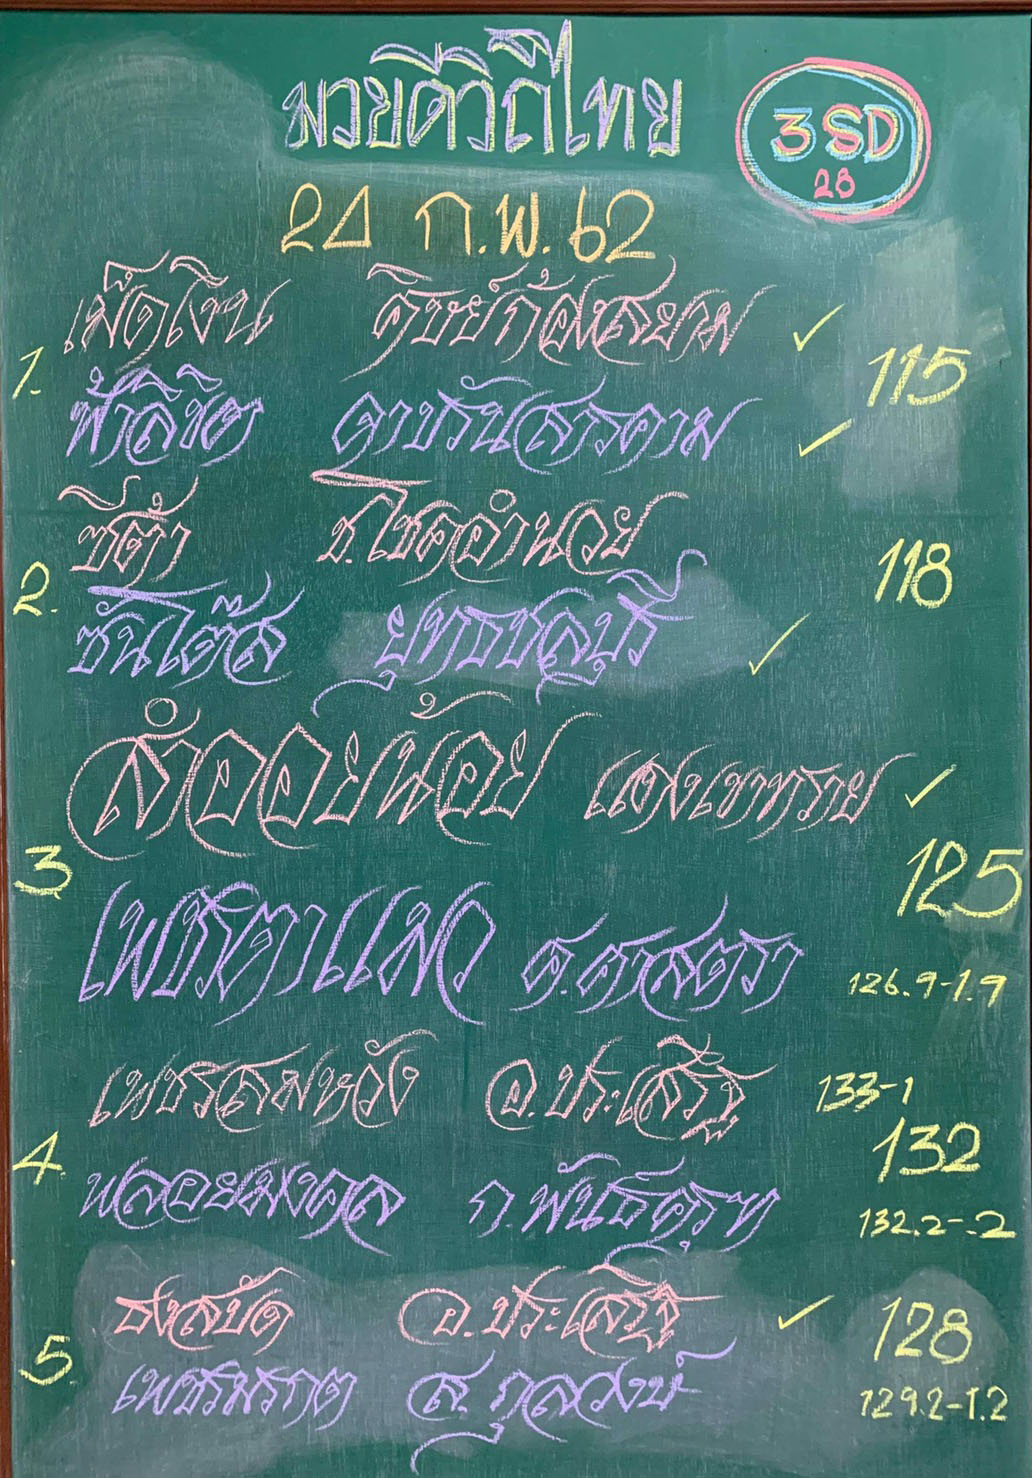 มวยดีวิถีไทย
3SD
28
24 ก.พ. 62
1.
เม็ดเงิน ศิษย์ก๋ฝนสยาม
115
ฟ้าลิขิต ดาบรันสารคาม
2.
ซีต้า ช.โชคอำนวย
118
ซันโต๊ส ยุทธชลบุรี
3
ลำออยน้อย แดงเขาทราย
125
เพชรตาแมว ศ.ศาสตรา
126.9-1.9
4.
เพชรสมหวัง อ.ประเสริฐ
133-1
132
พลอยมงคล
132.2-.2
5.
ธงสบัด อ.ประเสริฐ
128
เพชรมรกต ส.กูลวงษ์
129.2-1.2